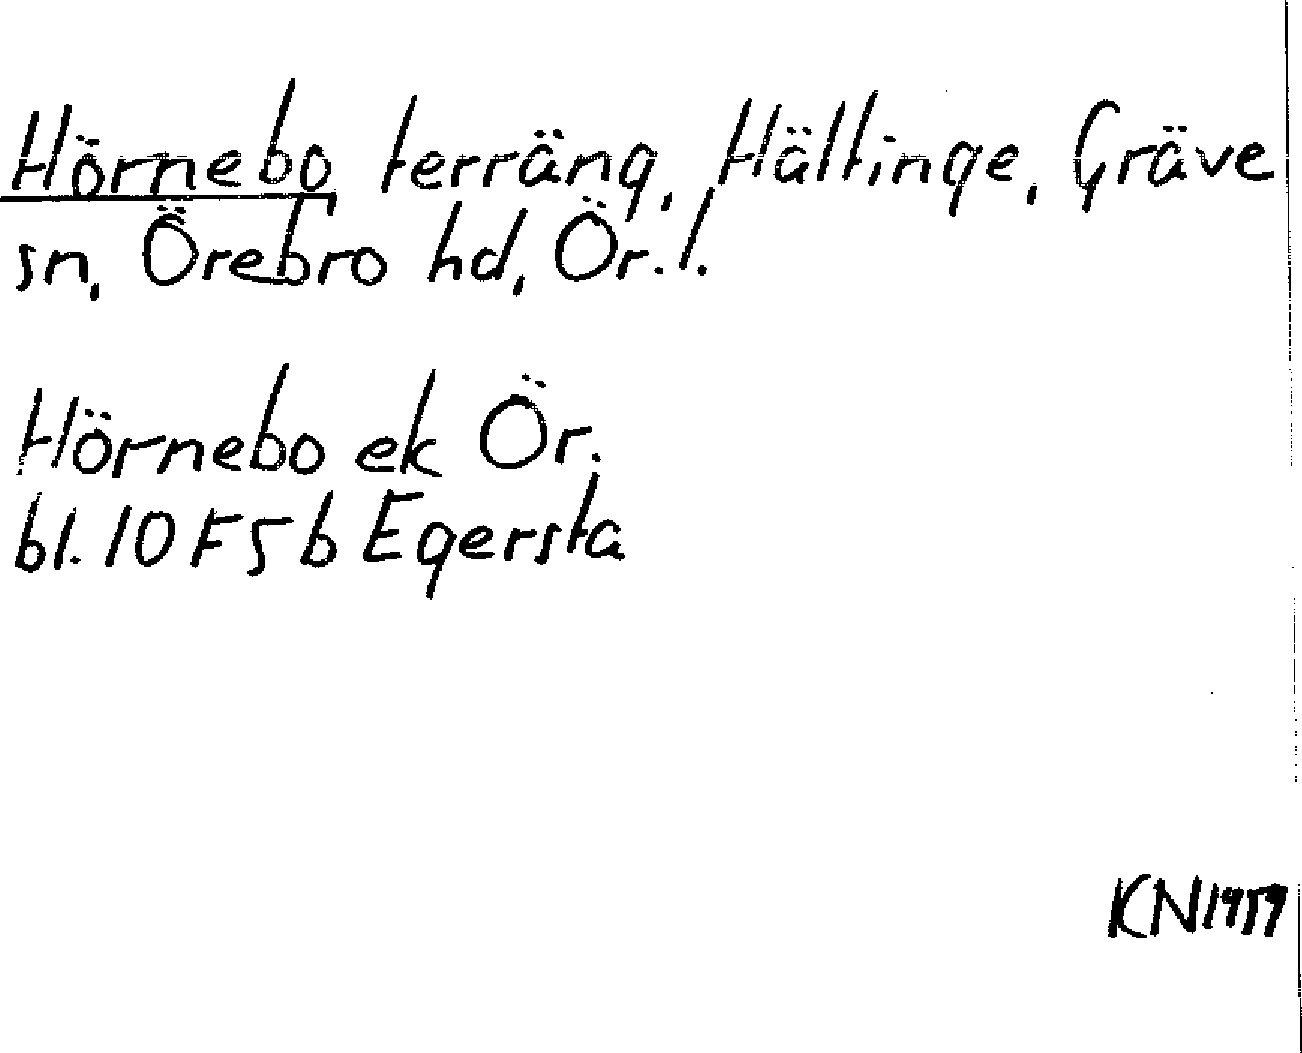 Hörnebo terräng, Hältinge, Gräve
sn, Örebro hd, Ör. l.
Hörnebo ek Ör.
bl. 10 F 5 b Egersta
KN 1959